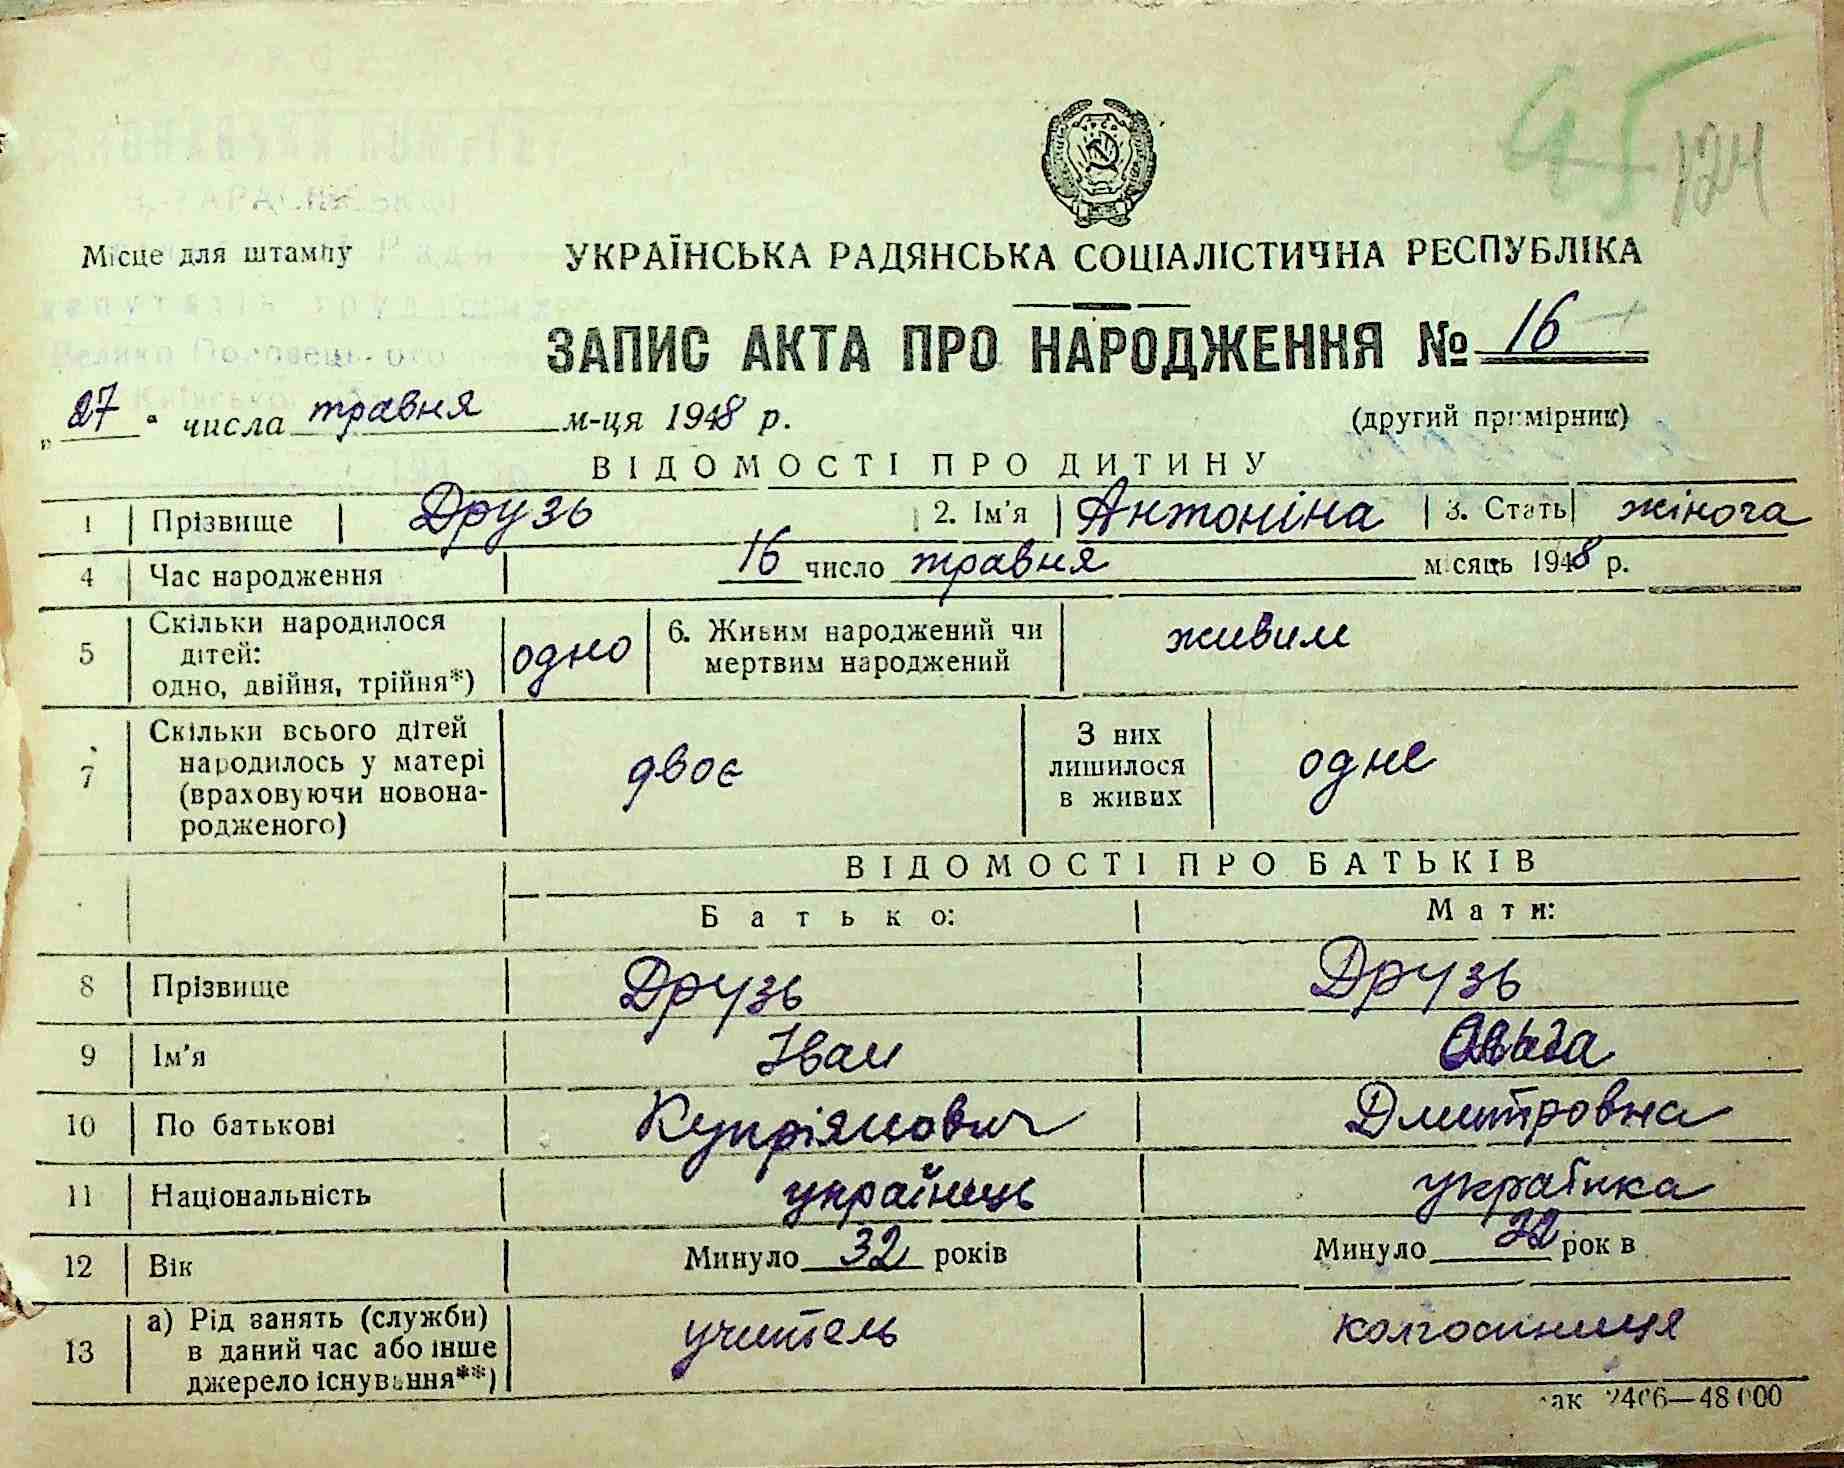 45 124
Місце для штампу
УКРАЇНСЬКА РАДЯНСЬКА СОЦІАЛІСТИЧНА РЕСПУБЛІКА
ЗАПИС АКТА ПРО НАРОДЖЕННЯ № 16
„27“ числа травня м-ця 1948 р.
(другий примірник)
ВІДОМОСТІ ПРО ДИТИНУ
1 Прізвище Друзь 2. Ім'я Антоніна 3. Стать жіноча
4 Час народження 16 число травня місяць 1948 р.
5 Скільки народилося
дітей:
одно, двійня, трійня*)
одно
6. Живим народжений чи
мертвим народжений
живим
7 Скільки всього дітей
народилось у матері
(враховуючи новона-
родженого)
двоє
З них
лишилося
в живих
одне
ВІДОМОСТІ ПРО БАТЬКІВ
Батько: Мати:
8 Прізвище Друзь Друзь
9 Ім'я Іван
10 По батькові Купріянович Дмитровна
11 Національність українець українка
12 Вік Минуло 32 років Минуло рок в
13 а) Рід занять (служби)
в даний час або інше
джерело існування**)
учитель колгоспниця
ак 2406—48000